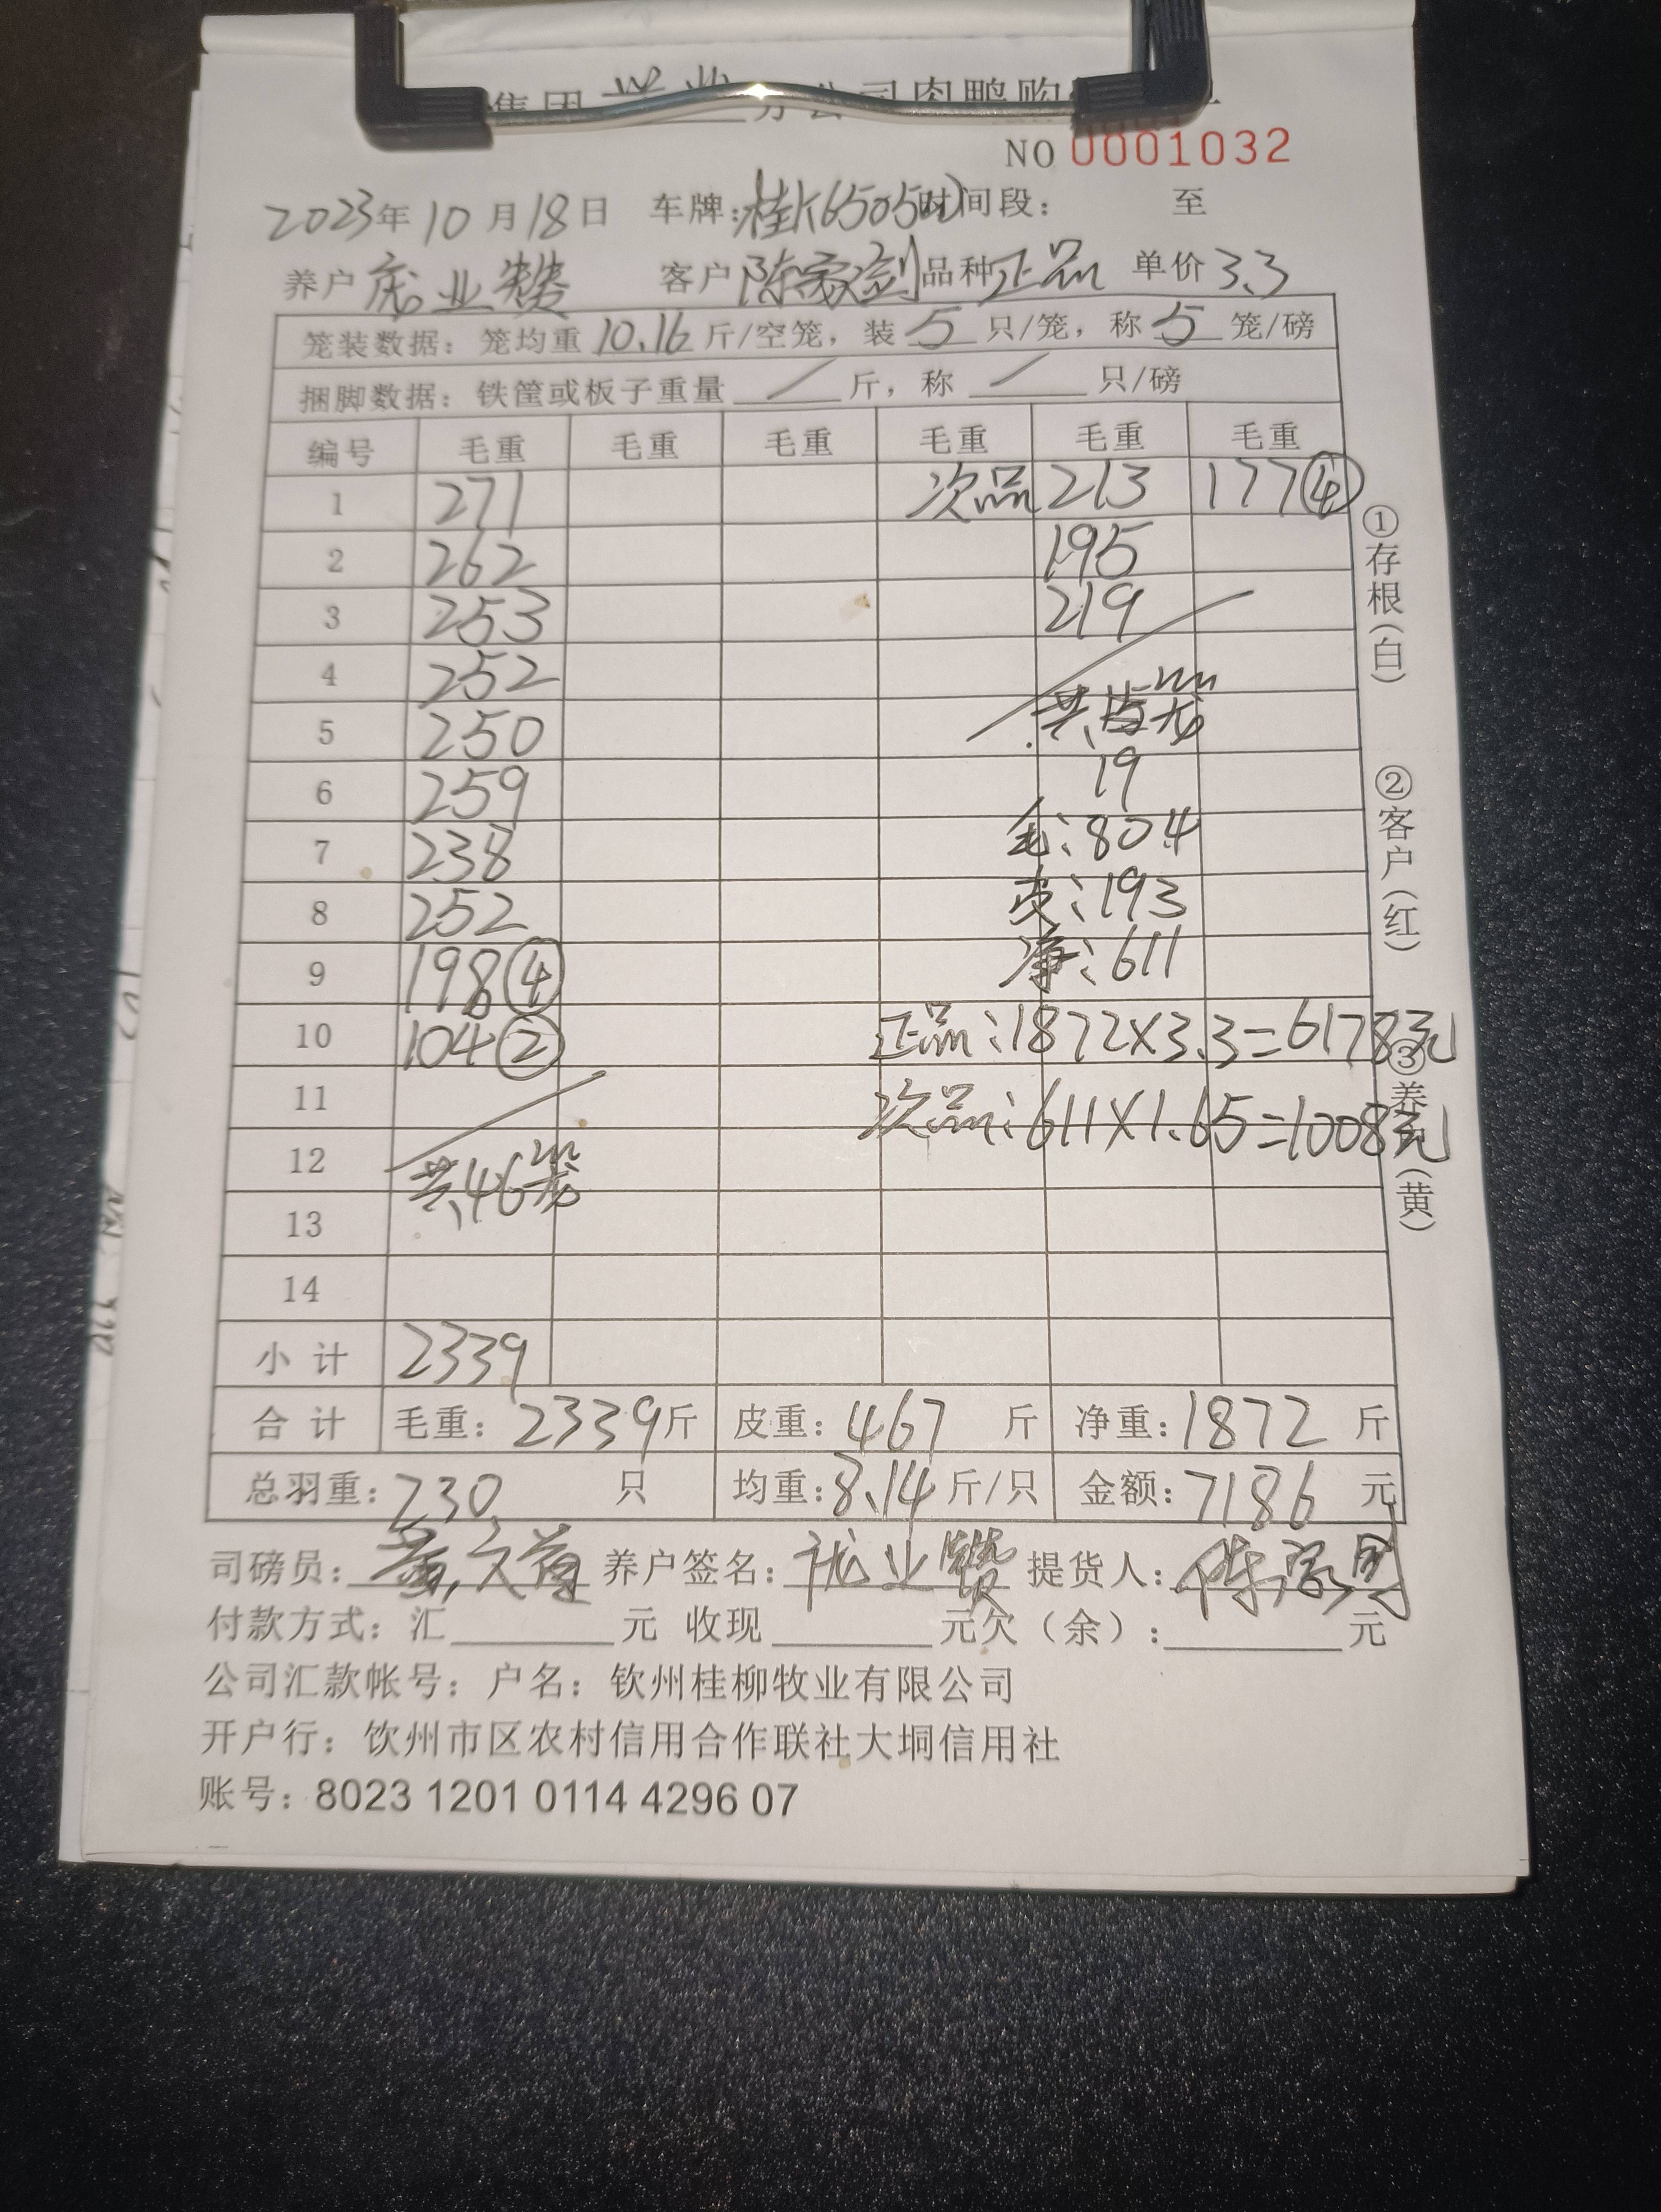 集团 分公司肉鸭购
NO 0001032
2023年10月18日 车牌:桂K6505 时间段: 至
养户 庞业赞 客户 陈家剑 品种 正品 单价 3.3
笼装数据: 笼均重 10.16 斤/空笼, 装 5 只/笼, 称 5 笼/磅
捆脚数据: 铁筐或板子重量 / 斤, 称 / 只/磅
编号 毛重 毛重 毛重 毛重 毛重 毛重
1 271 次品 213 177④
2 262 195
3 253 219
4 252
5 250 共 笼
6 259 19
7 238 毛:804
8 252 皮:193
9 198④ 净:611
10 104② 正品:1872×3.3=6178元
11 次品:611×1.65=1008元
12 共46笼
13
14
小计 2339
合计 毛重: 2339斤 皮重: 467 斤 净重: 1872 斤
总羽重: 230 只 均重: 8.14 斤/只 金额: 7186 元
司磅员: 养户签名: 庞业赞 提货人: 陈家
付款方式: 汇 元 收现 元欠(余): 元
公司汇款帐号: 户名: 钦州桂柳牧业有限公司
开户行: 饮州市区农村信用合作联社大垌信用社
账号: 8023 1201 0114 4296 07
①存根(白)
②客户(红)
③养 (黄)